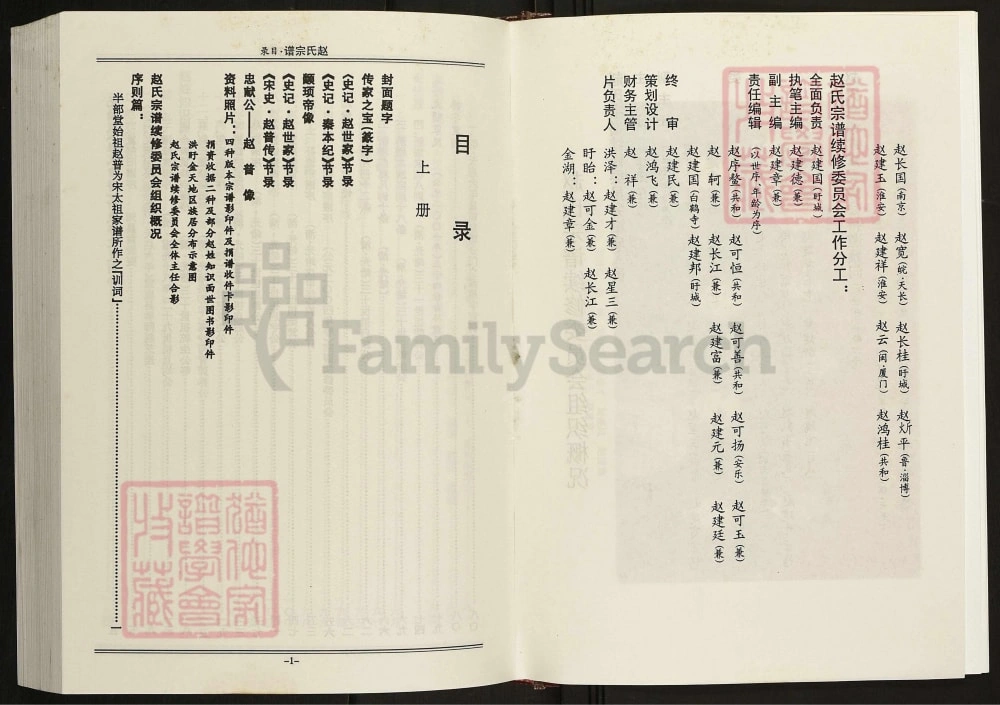 赵长国（南京）　赵宽（皖·天长）　赵长桂（盱城）　赵炘平（鲁·淄博）
赵建玉（淮安）　赵建祥（淮安）　赵云（闽·厦门）　赵鸿桂（共和）
赵氏宗谱续修委员会工作分工：
全面负责　赵建国（盱城）
执笔主编　赵建德（兼）
副主编　赵建章（兼）
责任编辑　（以世序、年龄为序）
赵序鳌（共和）　赵可恒（共和）　赵可善（共和）　赵可扬（安乐）　赵可玉（兼）
赵轲（兼）　赵长江（兼）　赵建富（兼）　赵建元（兼）　赵建廷（兼）
赵建国（白鹤寺）　赵建邦（盱城）
终审　赵建民（兼）
策划设计　赵鸿飞（兼）
财务主管　赵祥（兼）
片负责人　洪泽：赵建才（兼）　赵星三（兼）
盱眙：赵可金（兼）　赵长江（兼）
金湖：赵建章（兼）
赵氏宗谱·目录
目录
上册
封面题字
传家之宝（篆字）
《史记·赵世家》节录
《史记·秦本纪》节录
颛顼帝像
《史记·赵世家》节录
《宋史·赵普传》节录
忠献公——赵普像
资料照片：四种版本宗谱影印件及捐谱收件卡影印件
捐资收据二种及部分赵姓知识面世图书影印件
洪盱金天地区族居分布示意图
赵氏宗谱续修委员会全体主任合影
赵氏宗谱续修委员会组织概况
序则篇：
半部堂始祖赵普为宋太祖家谱所作之「训词」……1
-1-
FamilySearch